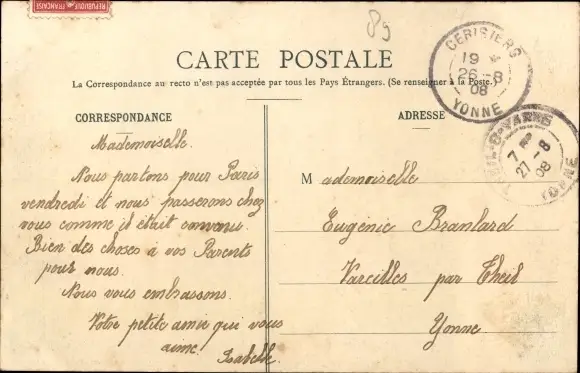 RÉPUBLIQUE FRANÇAISE
89
CARTE POSTALE
La Correspondance au recto n'est pas acceptée par tous les Pays Étrangers. (Se renseigner à la Poste.)
CERISIERS
19
26-8
08
YONNE
CORRESPONDANCE
Mademoiselle.
Nous partons pour Paris
vendredi et nous passerons chez
vous comme il était convenu.
Bien des choses à vos Parents
pour nous.
Nous vous embrassons.
Votre petite amie qui vous
aime. Isabelle.
ADRESSE
7
27-8
08
YONNE
Mademoiselle
Eugénie Branlard
Vareilles par Theil
Yonne